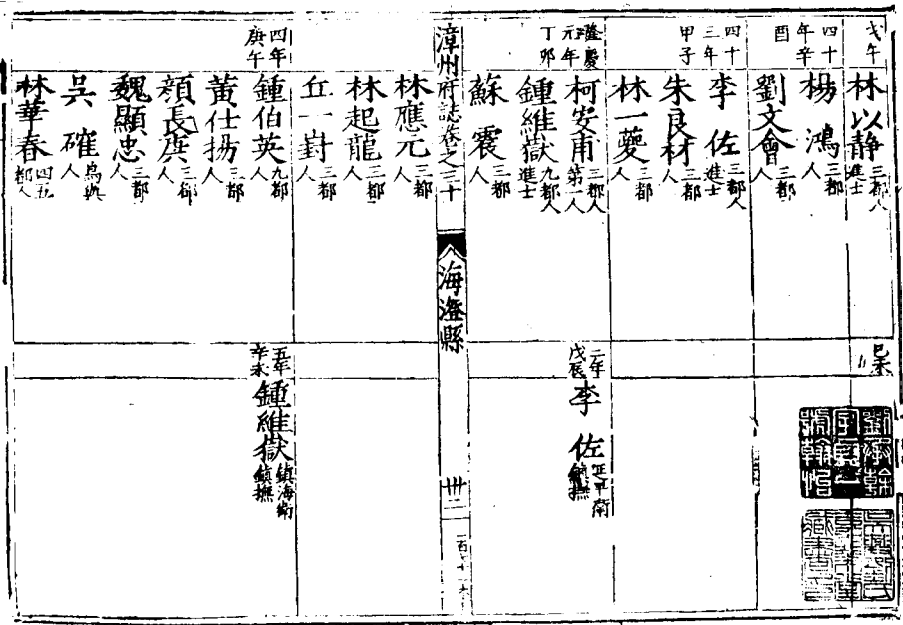 戊午
林以静 三都人 進士
四十年辛酉
楊鴻 三都人
劉文會 三都人
四十三年甲子
李佐 三都人 進士
朱良材 三都人
林一夔 三都人
隆慶元年丁卯
柯安甫 三都人 第一人
鍾維嶽 九都人 進士
蘇震 三都人
漳州府誌卷之三十
海澄縣
卅二
林應元 三都人
林起龍 三都人
丘一對 三都人
四年庚午
鍾伯英 九都人
黃仕揚 三都人
顏長庚 三都人
魏顯忠 三都人
吳確 人
林華春 四五都人
己未
二年戊辰
李佐
鎮撫
五年辛未
鍾維嶽 鎮海衛 鎮撫